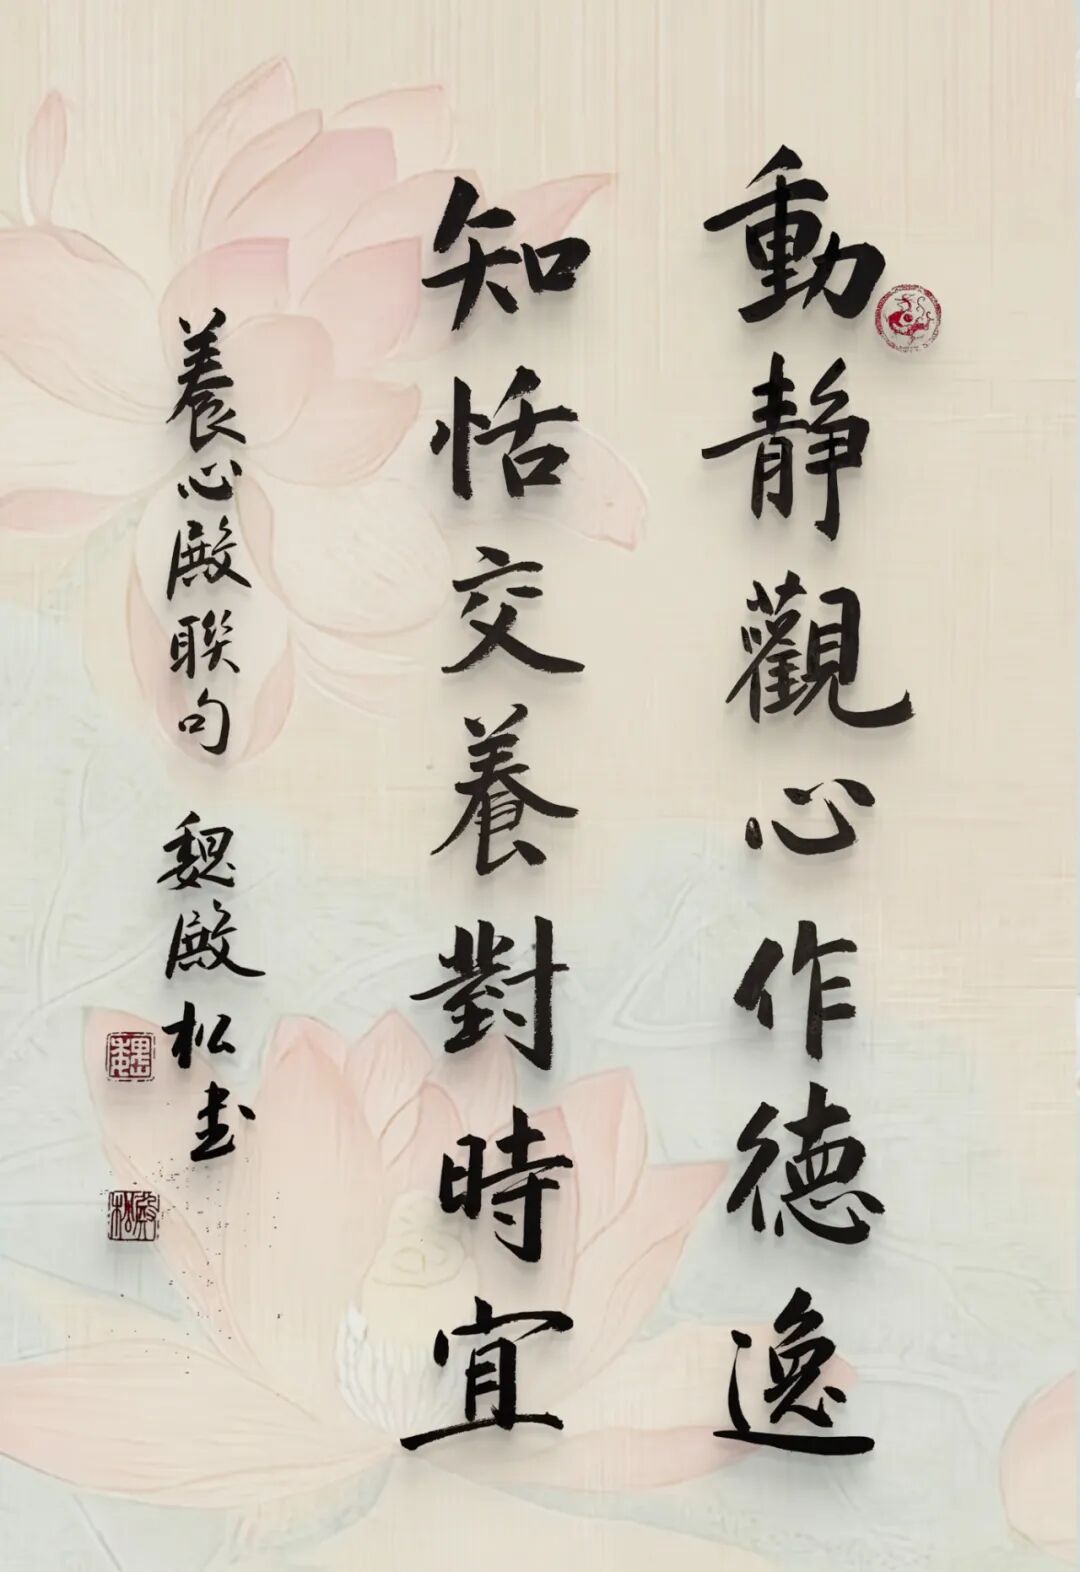 動靜觀心作德逸
知恬交養對時宜
養心殿聯句 魏殿松书
魏
殿松